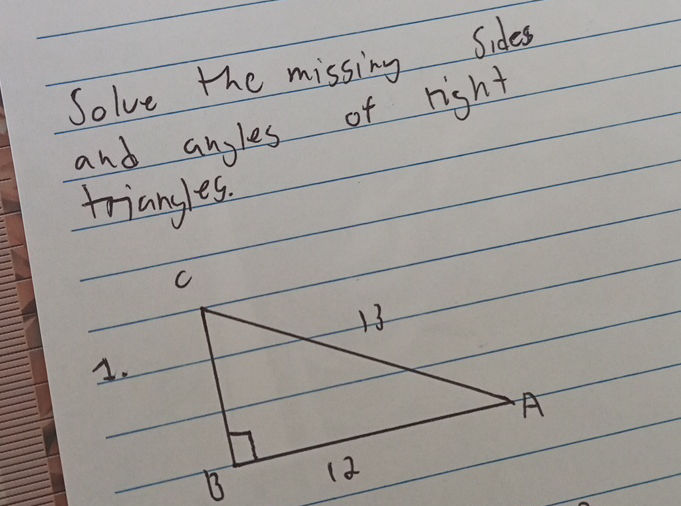 Solve the missing sides
and angles of right
triangles.
C
13
1.
A
12
B